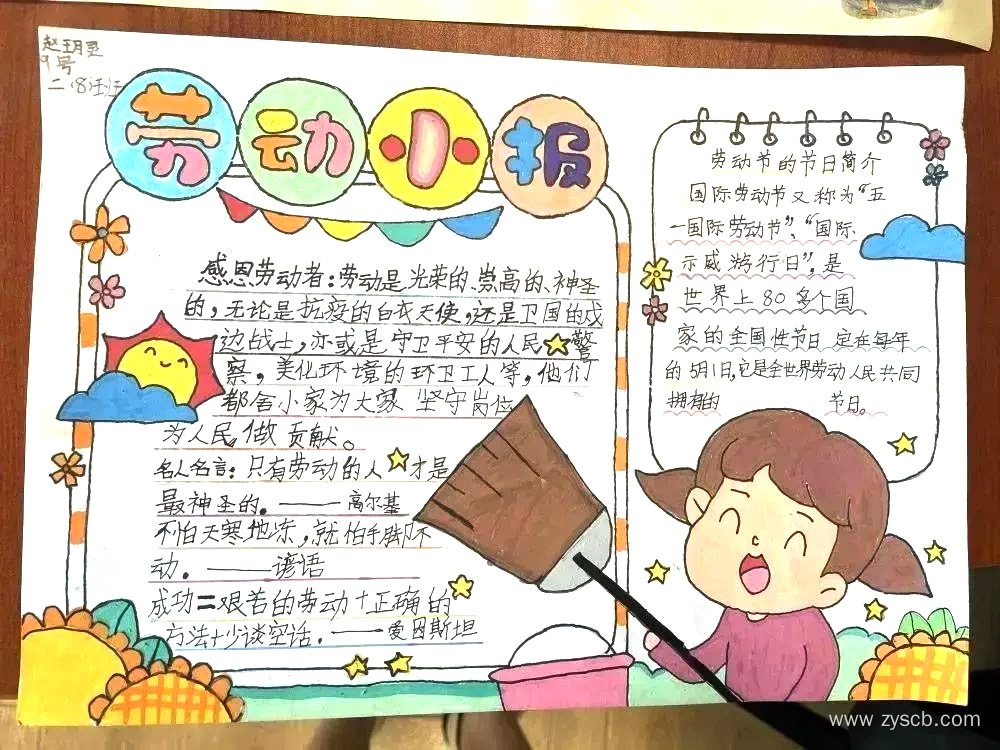 赵玥灵
9号
二(8)班
劳动小报
感恩劳动者:劳动是光荣的、崇高的、神圣
的,无论是抗疫的白衣天使,还是卫国的戍
边战士,亦或是守卫平安的人民警
察,美化环境的环卫工人等,他们
都舍小家为大家 坚守岗位
为人民做贡献。
名人名言:只有劳动的人才是
最神圣的。——高尔基
不怕天寒地冻,就怕手脚不
动。——谚语
成功=艰苦的劳动+正确的
方法+少谈空话.——爱因斯坦
劳动节的节日简介
国际劳动节又称为“五
一国际劳动节”、“国际
示威游行日”,是
世界上80多个国
家的全国性节日 定在每年
的5月1日,它是全世界劳动人民共同
拥有的 节日。
www.zyscb.com